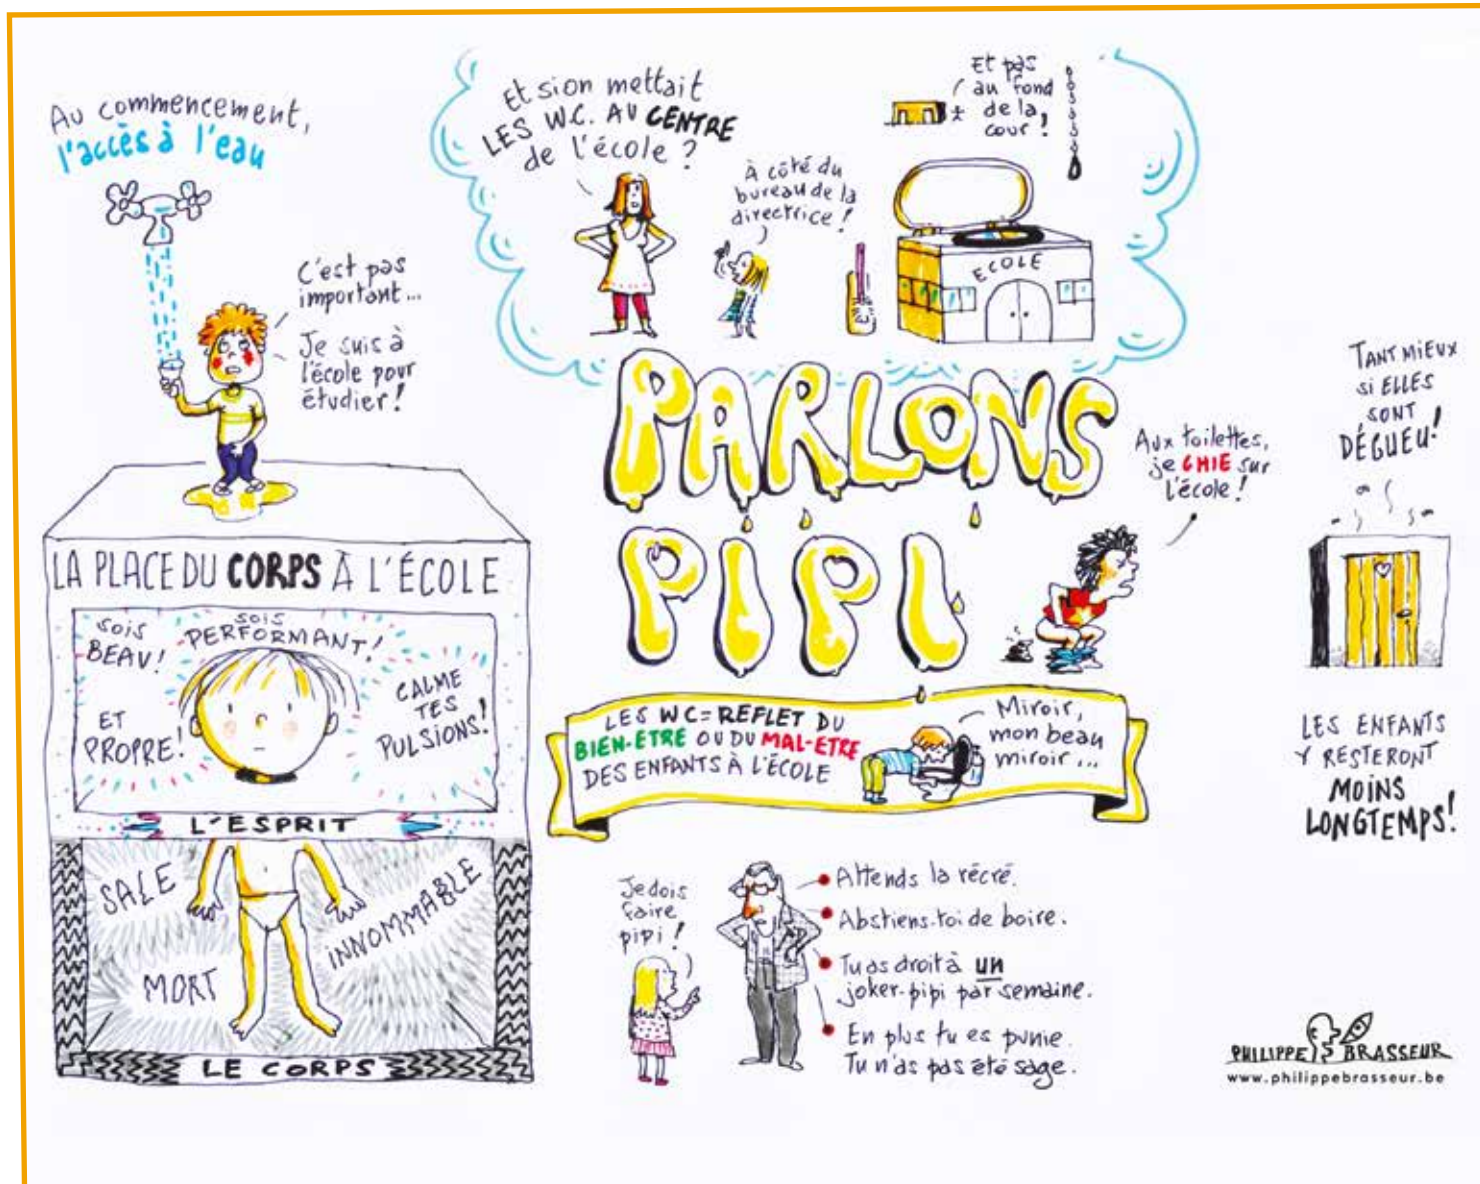 Au commencement,
l'accès à l'eau
C'est pas
important...
Je suis à
l'école pour
étudier!
Et si on mettait
LES W.C. AU CENTRE
de l'école ?
À côté du
bureau de la
directrice !
Et pas
au fond
de la
cour !
ECOLE
PARLONS
PIPI
Aux toilettes,
je CHIE sur
l'école !
TANT MIEUX
si ELLES
SONT
DÉGUEU!
LES ENFANTS
Y RESTERONT
MOINS
LONGTEMPS!
LA PLACE DU CORPS À L'ÉCOLE
sois
BEAU!
sois
PERFORMANT!
ET
PROPRE!
CALME
TES
PULSIONS!
L'ESPRIT
SALE
MORT
INNOMMABLE
LE CORPS
LES WC = REFLET DU
BIEN-ETRE OU DU MAL-ETRE
DES ENFANTS À L'ÉCOLE
Miroir,
mon beau
miroir...
Je dois
faire
pipi !
Attends la récré.
Abstiens-toi de boire.
Tu as droit à un
joker-pipi par semaine.
En plus tu es punie.
Tu n'as pas été sage.
PHILIPPE BRASSEUR
www.philippebrasseur.be